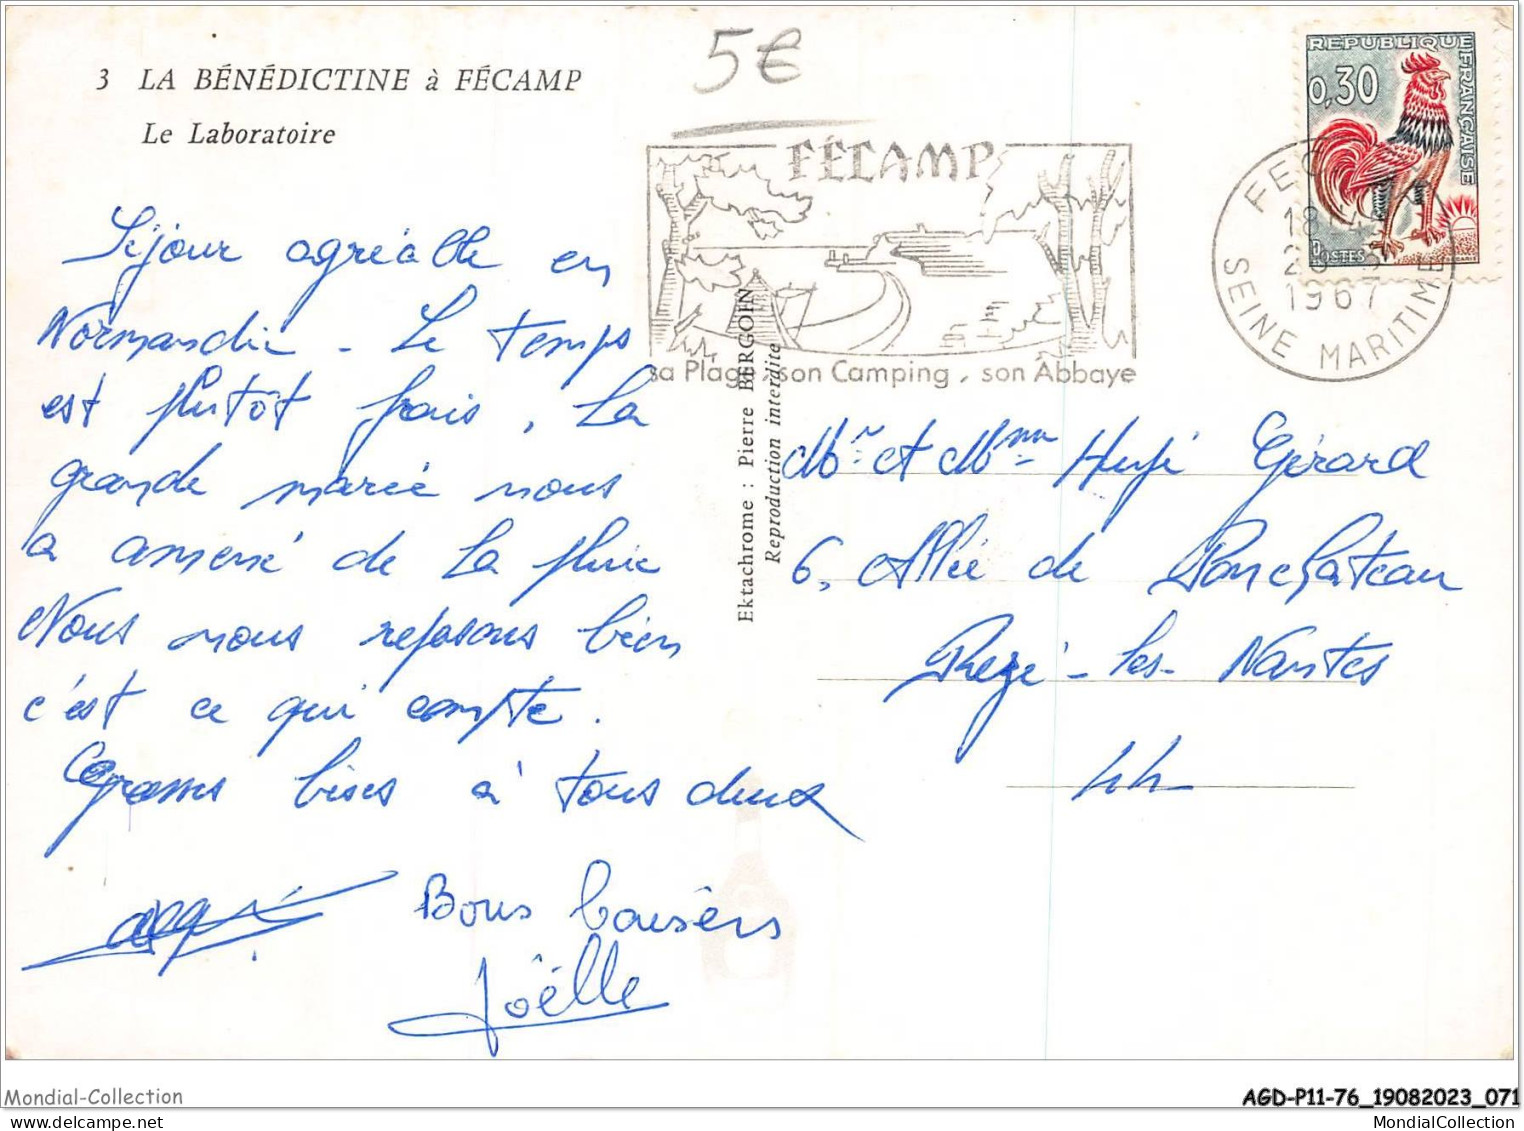 3 LA BÉNÉDICTINE à FÉCAMP
Le Laboratoire
5€
FÉCAMP
sa Plage, son Camping, son Abbaye
REPUBLIQUE FRANÇAISE
0,30
POSTES
FEC
18
1967
SEINE MARITIME
Séjour agréable en
Normandie - Le temps
est plutôt frais, La
grande marée nous
a amené de la pluie
Nous nous reposons bien
c'est ce qui compte.
Grosses bises à tous deux
Bons baisers
Joëlle
Ektachrome : Pierre BERGOIN
Reproduction interdite
Mr et Mme Gérard
6, Allée de Ponchateau
Rezé-les-Nantes
44
Mondial-Collection
AGD-P11-76_19082023_071
MondialCollection